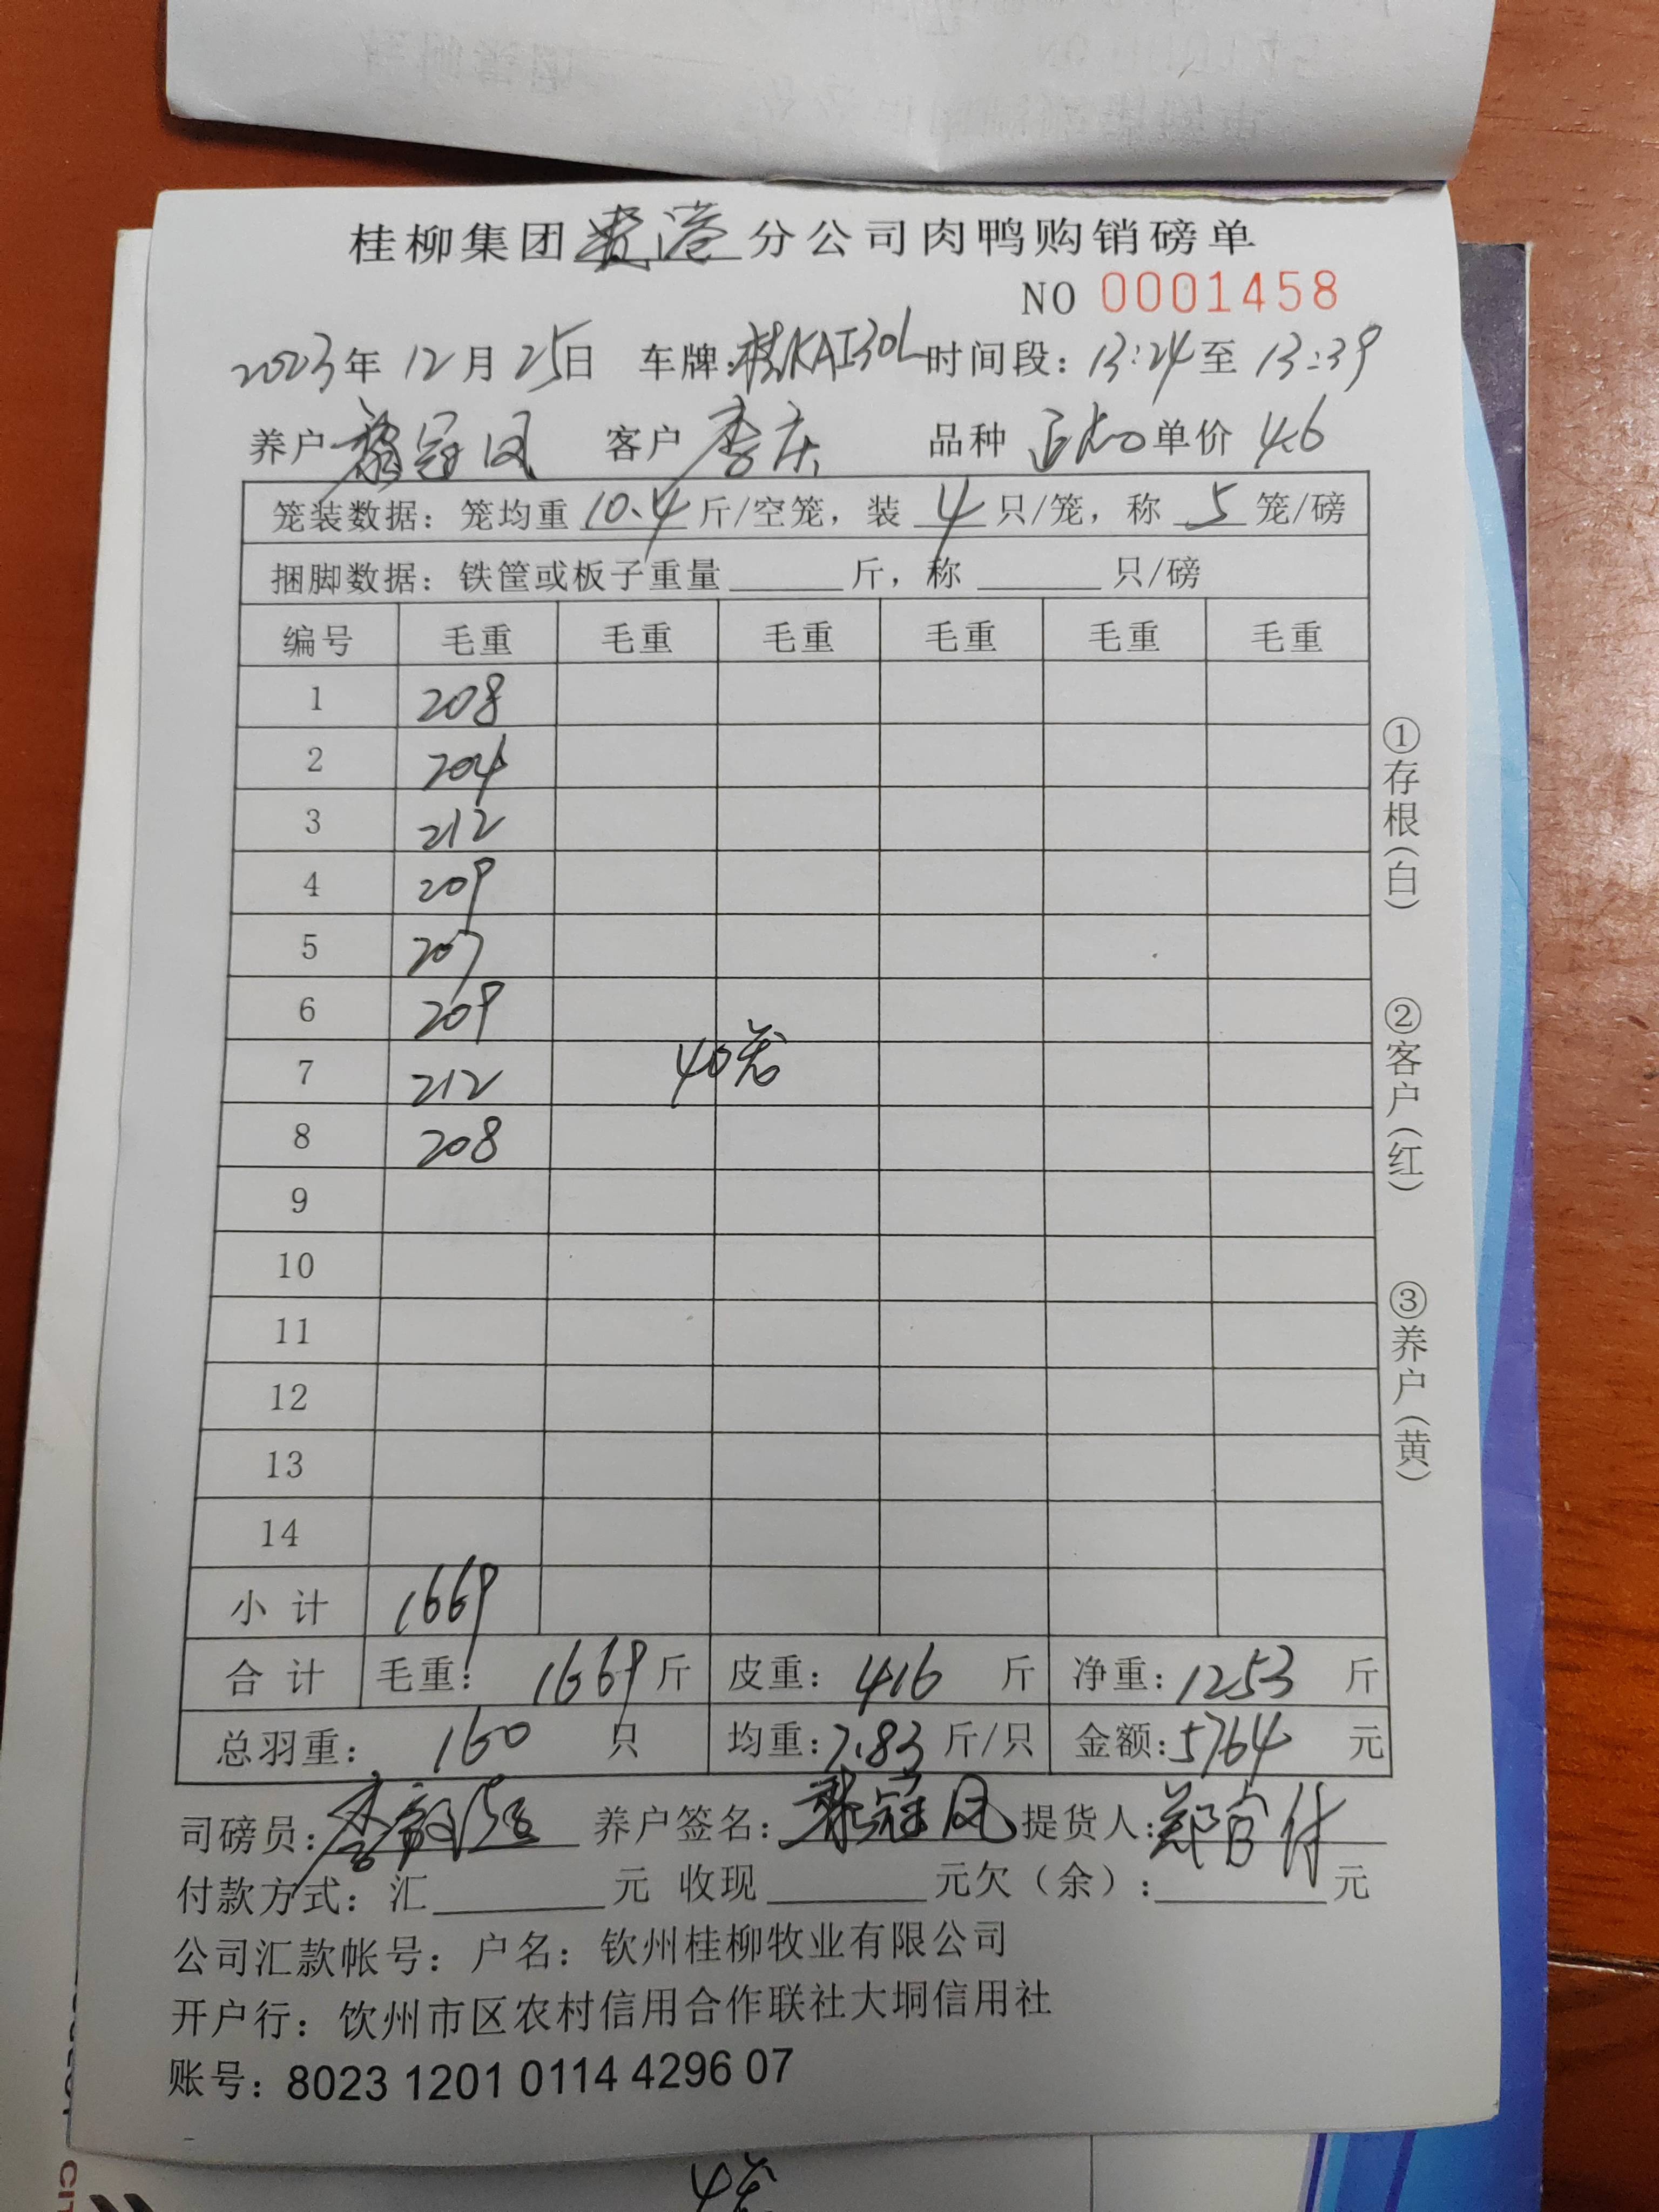 桂柳集团贵港分公司肉鸭购销磅单
NO 0001458
2023年 12月 25日 车牌: 时间段: 13:24至 13:39
养户 冠凤 客户 李庆 品种 单价 4.6
笼装数据: 笼均重 10.4 斤/空笼, 装 4 只/笼, 称 5 笼/磅
捆脚数据: 铁筐或板子重量 斤, 称 只/磅
编号 毛重 毛重 毛重 毛重 毛重 毛重
1 208
2 204
3 212
4 209
5 207
6 209
7 212
40笼
8 208
9
10
11
12
13
14
小计 1669
合计 毛重: 1669斤 皮重: 416 斤 净重: 1253 斤
总羽重: 160 只 均重: 7.83 斤/只 金额: 5764 元
司磅员: 李 养户签名: 冠凤 提货人: 郑官
付款方式: 汇 元 收现 元欠(余): 元
公司汇款帐号: 户名: 钦州桂柳牧业有限公司
开户行: 钦州市区农村信用合作联社大垌信用社
账号: 8023 1201 0114 4296 07
①存根(白)
②客户(红)
③养户(黄)